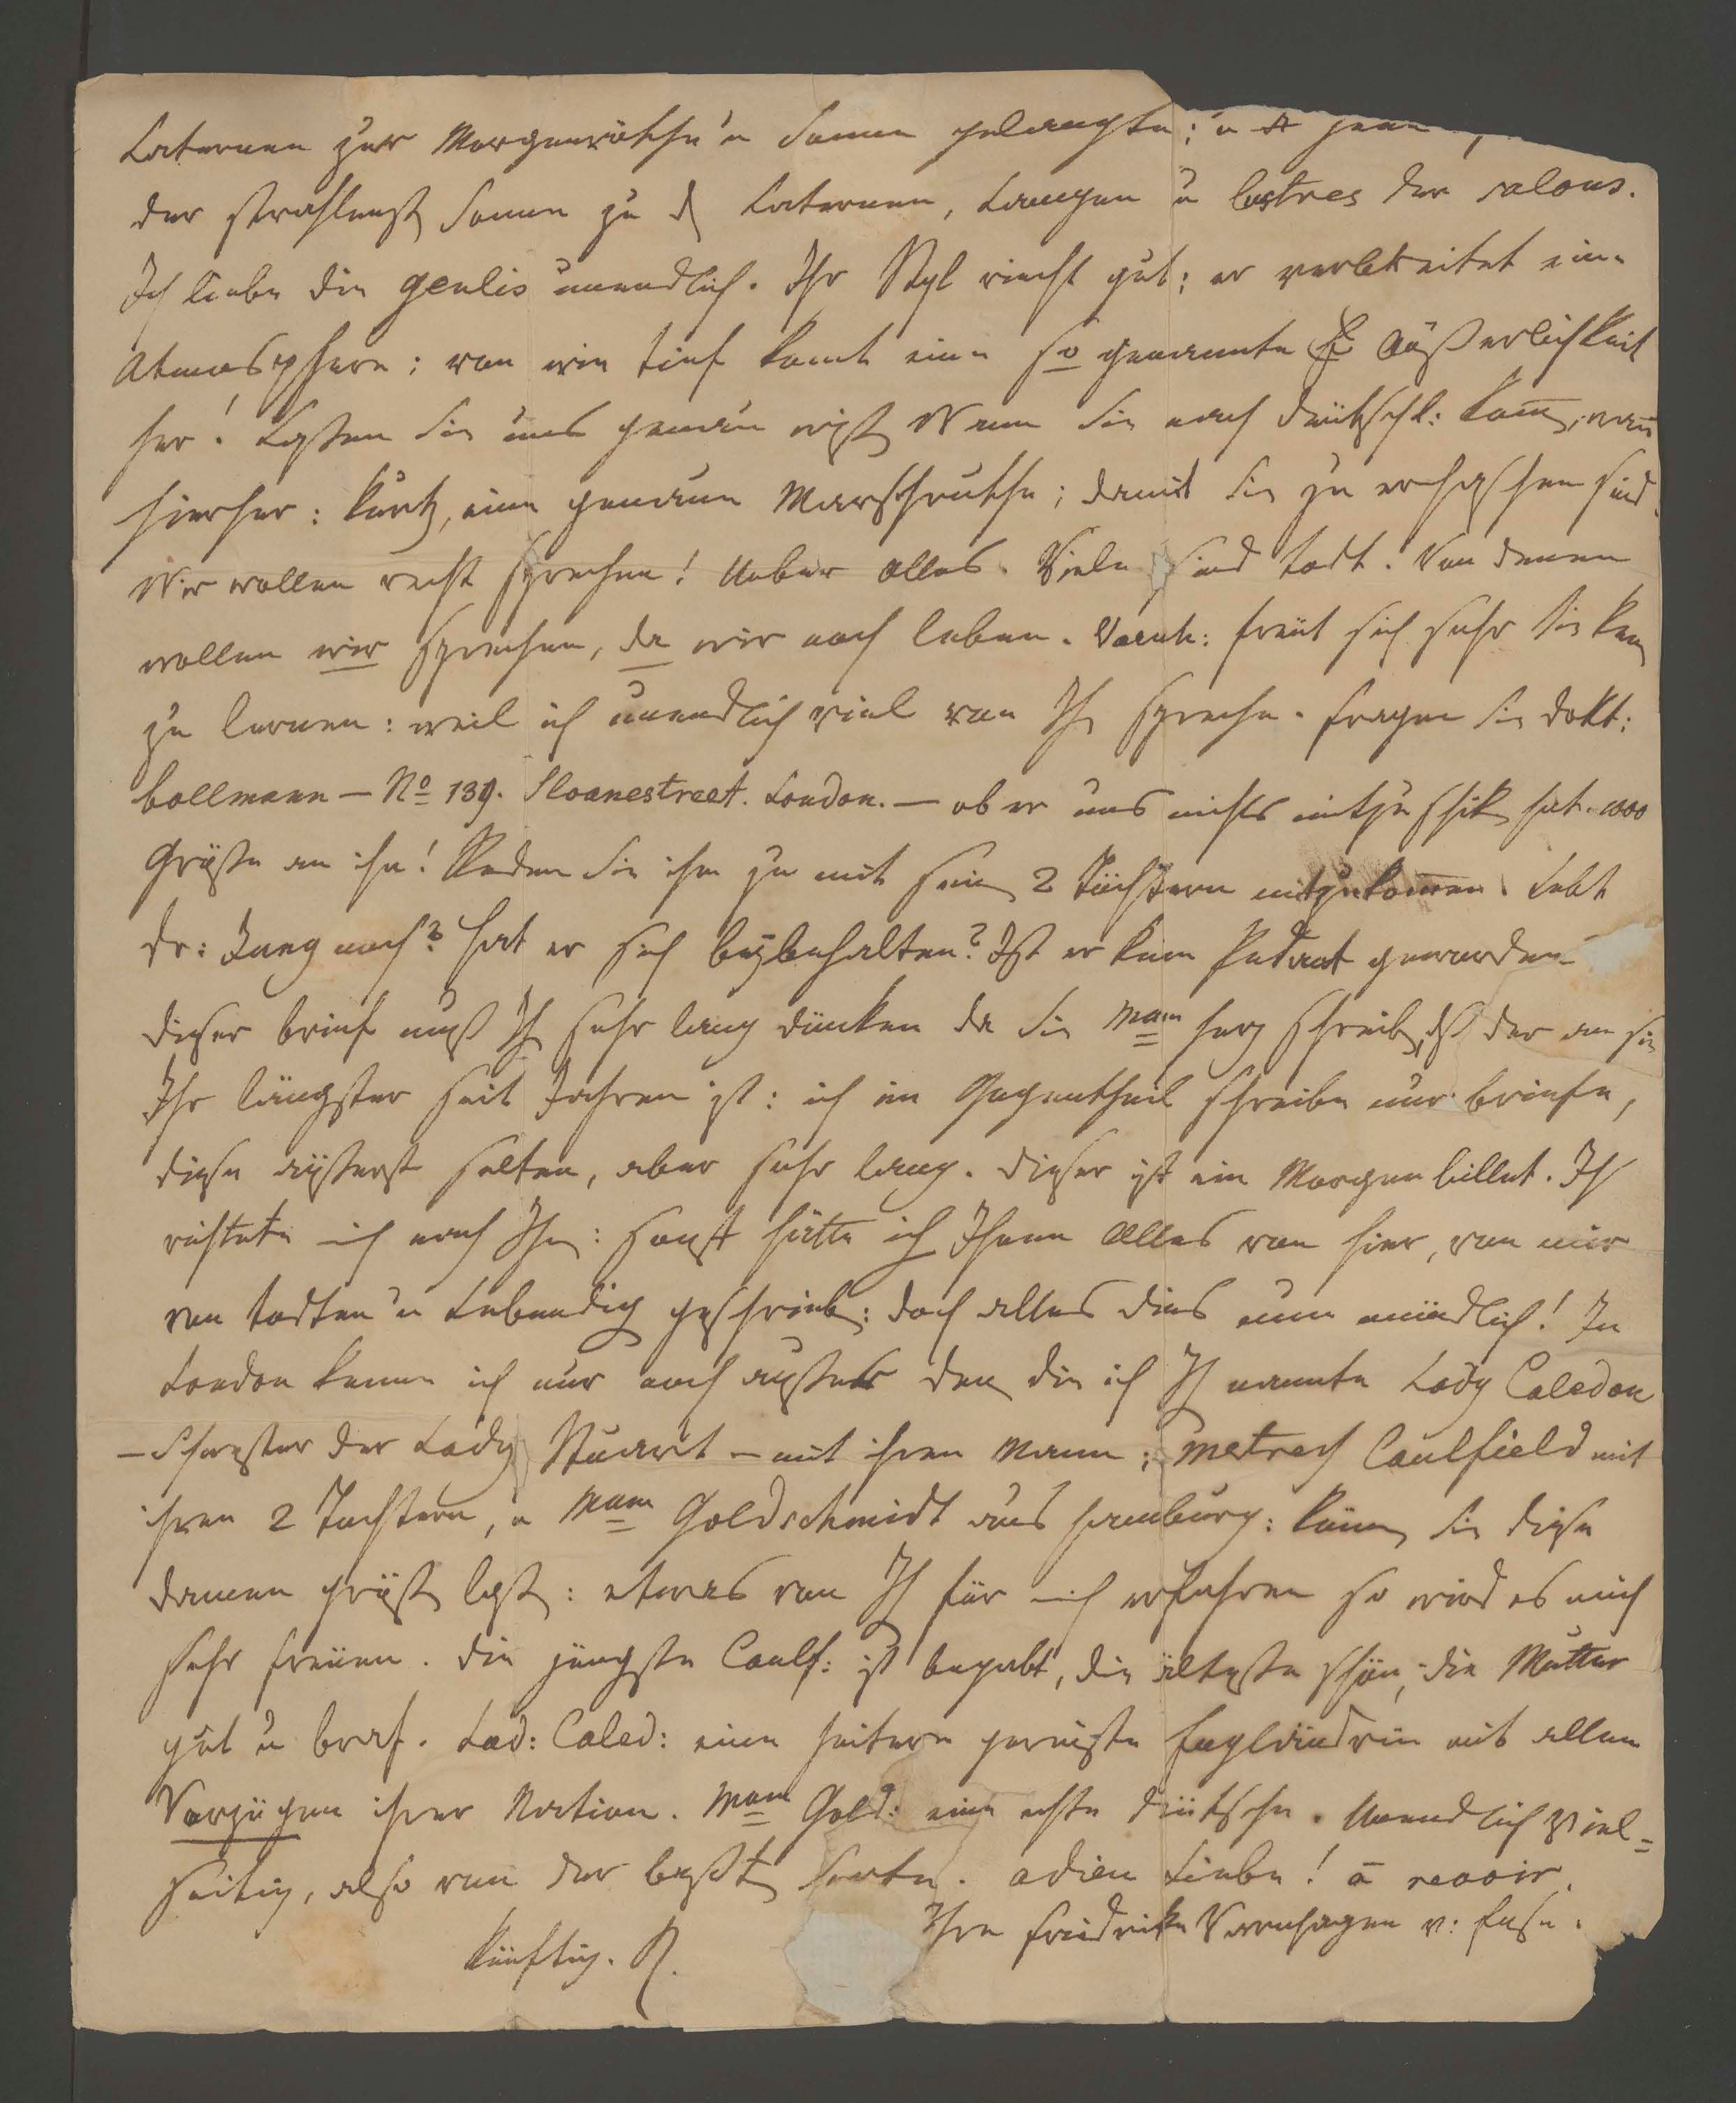 Laternen zur Morgenröthe u Sonne gelangte; u jene
der strahlenst Sonne zu d Laternen, Lampen u lustres der salons.
Ich liebe die Genlis unendlich. Ihr Styl riecht gut; er verbreitet eine
Atmosphere: von wie tief komt eine so genannte Äußerlichkeit
her! Laßen Sie uns genau wißen Wenn Sie nach Deutschl: kom̄, wan̄
hierher: kurtz, eine genaue Marschruthe; damit Sie zu erhaschen sind.
Wir wollen recht sprechen! Ueber Alles. Viele sind todt. Von denen
wollen wir sprechen, da wir noch leben. Varnh: freut sich sehr Sie ken
zu lernen: weil ich unendlich viel von Ihn spreche. Fragen Sie Dokt:
Bollmann — No 139. Sloanestreet. London. — ob er uns nichts mitzuschik hat. 1000
Grüße an ihn! Reden Sie ihm zu mit sein 2 Töchtern mitzukom̄en. Lebt
Dr: Jung noch? hat er sich beybehalten? Ist er kein Pedant geworden
Dieser brief muß Ih sehr lang dünken da Sie Mam Herz schreib, dß der an sie
Ihr längster seit Jahren ist: ich im Gegentheil schreibe nur briefe,
diese äußerst selten, aber sehr lang. Dieser ist ein Morgenbillet. Ich
richtete mich nach Ihn: sonst hätte ich Ihnen Alles von hier, von mir
von todten u Lebendig geschrieb: doch alles dies nun mündlich! In
London kenne ich nur noch außer den die ich Ih nannte Lady Caledon
— Schwester der Lady Stuart — mit ihren Mann; Metreß Caulfield mit
ihren 2 Tochtern, u Mam Goldschmidt aus Hamburg: könn Sie diese
Damen grüß laß: etwas von Ih für mich erfahren so wird es mich
sehr freuen. Die jüngste Caulf: ist begabt, die älteste schön, die Mutter
gut u braf. Lad: Caled: eine heitere gereiste Engländrin mit allen
Vorzügen ihrer Nation. Mam Gold: eine echte Deutsche. Unendlich viel=
seitig, also von der beßt Sorte. Adieu Liebe! à revoir.
Ihre Friedrike Varnhagen v: Ense.
künftig. R.